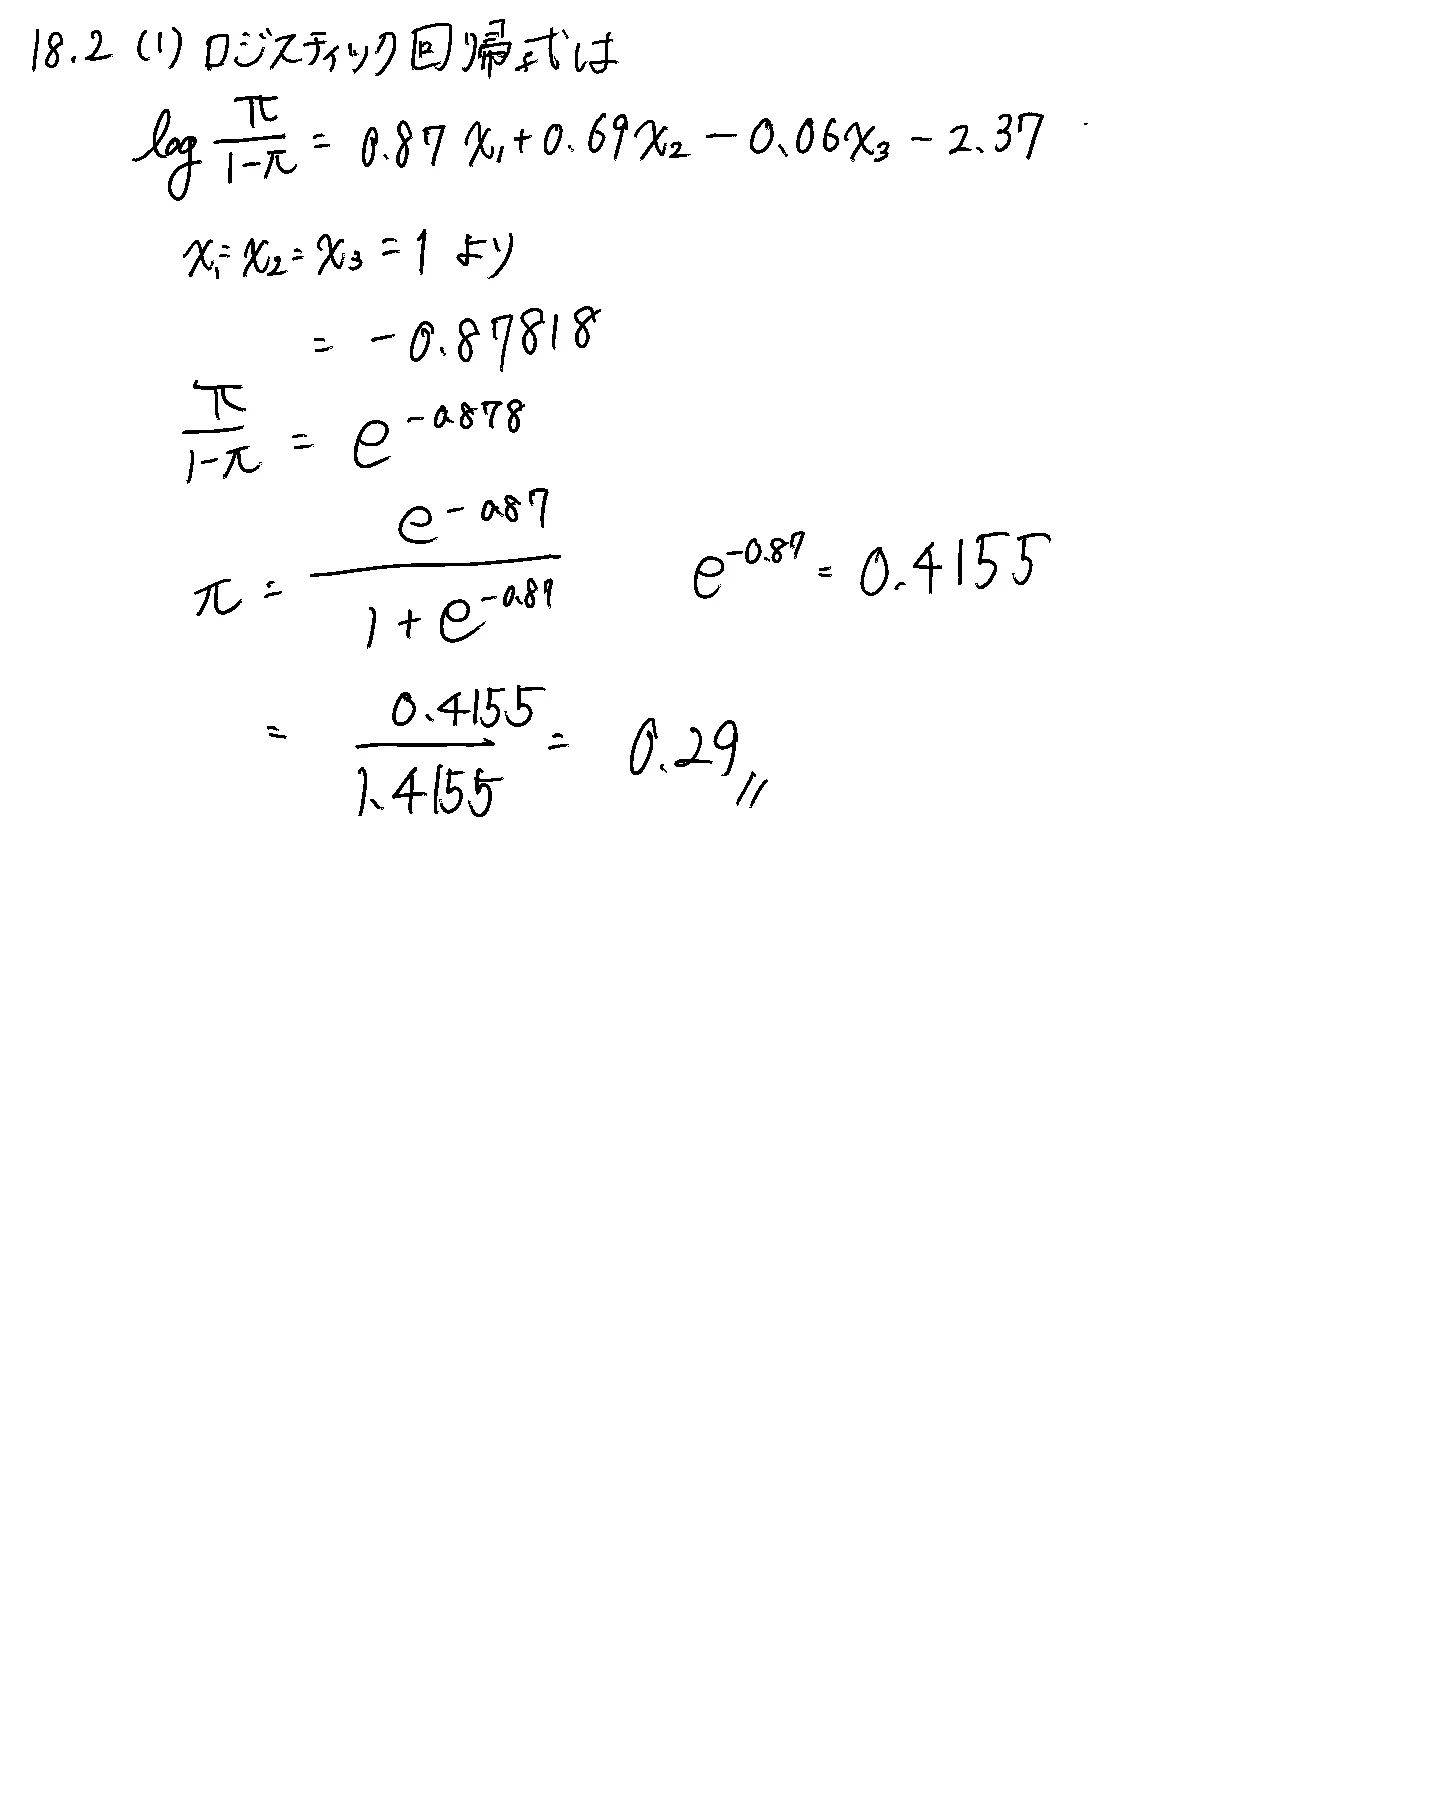 18.2 (1) ロジスティック回帰式は
log π/(1-π) = 0.87x₁ + 0.69x₂ - 0.06x₃ - 2.37
x₁ = x₂ = x₃ = 1 より
= -0.87818
π/(1-π) = e^(-0.878)
π = e^(-0.87)/(1+e^(-0.87)) e^(-0.87) = 0.4155
= 0.4155/1.4155 = 0.29〃